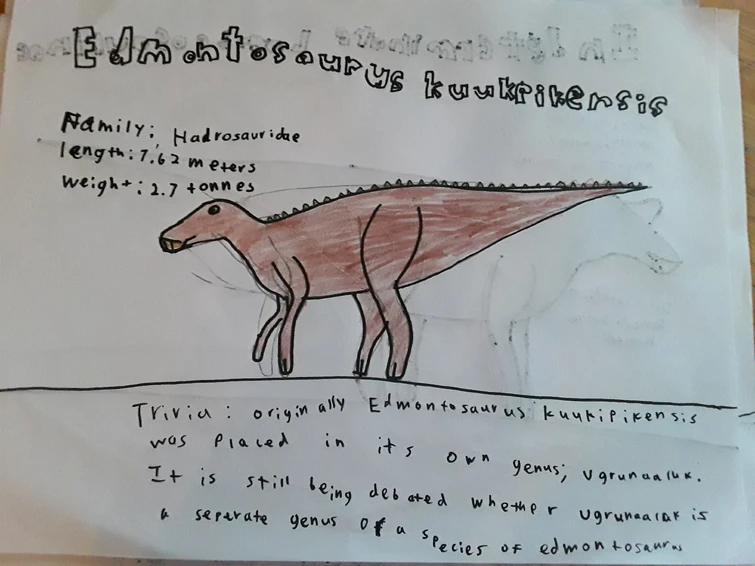 Edmontosaurus kuukpikensis
Family: Hadrosauridae
length: 7.62 meters
weight: 2.7 tonnes
Trivia: originally Edmontosaurus kuukipikensis
was placed in its own genus; Ugrunaaluk.
It is still being debated whether ugrunaaluk is
a seperate genus of a species of edmontosaurus